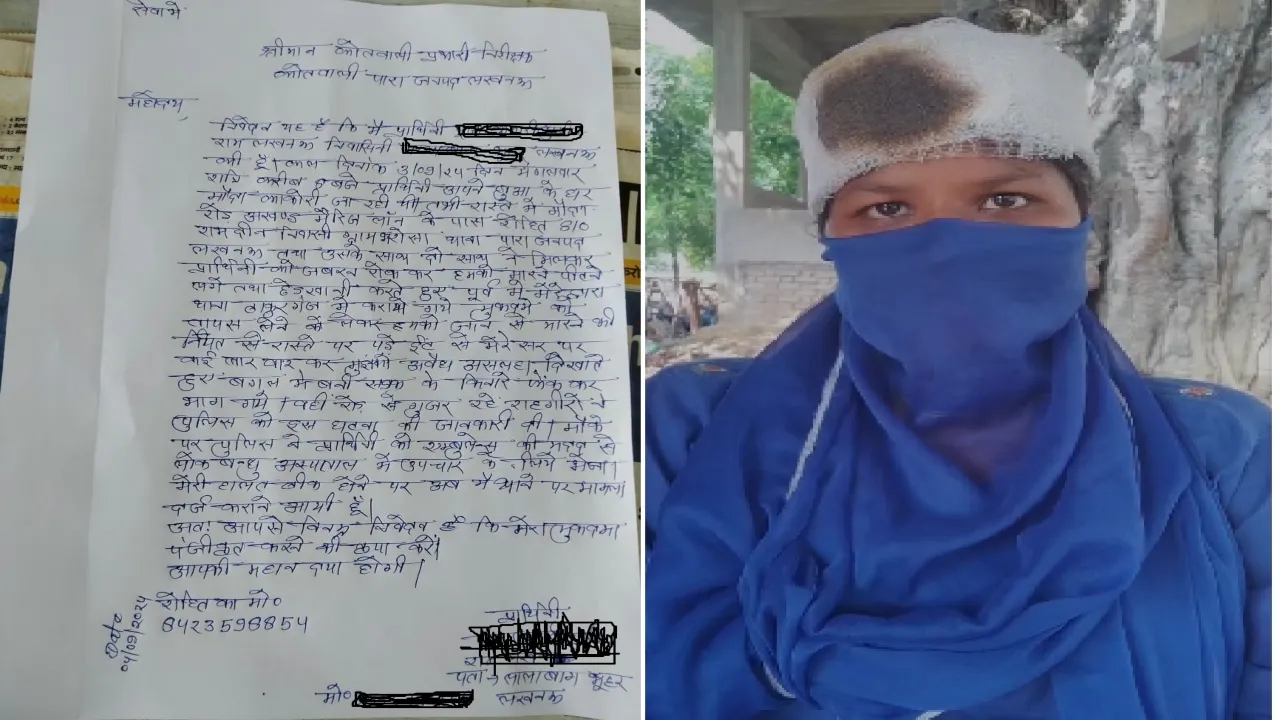 सेवामें
श्रीमान कोतवाली प्रभारी निरीक्षक
कोतवाली पारा जनपद लखनऊ
महोदय,
निवेदन यह है कि मै प्रार्थिनी
राम लखनऊ निवासिनी लखनऊ
की हूँ। कल दिनांक 3/09/24 दिन मंगलवार
रात्रि करीब बजे प्रार्थिनी अपने बुआ के घर
मौदा काकोरी जा रही थी तभी रास्ते में मौदा
रोड अखण्ड मैरिज लॉन के पास रोहित S/O
रामदीन निवासी ग्राम भरोसा थाना पारा जनपद
लखनऊ तथा उसके साथ दो साथी ने मिलकर
प्रार्थिनी को जबरन रोक कर हमको मारने पीटने
लगे तथा छेड़खानी करते हुए पूर्व में मेरे द्वारा
थाना ठाकुरगंज में कराये गये मुकदमे को
वापस लेने को लेकर हमको जान से मारने की
नियत से रास्ते पर पड़े ईंट से मेरे सर पर
कई बार वार कर मुझको अवैध असलहा दिखाते
हुए बगल में बनी सड़क के किनारे फेंक कर
भाग गये। वही रोड से गुजर रहे राहगीरों ने
पुलिस को इस घटना की जानकारी दी। मौके
पर पुलिस ने प्रार्थिनी को एम्बुलेन्स की मदद से
लोक बन्धु अस्पताल में उपचार के लिये भेजा।
मेरी हालत ठीक होने पर अब मै थाने पर मामला
दर्ज कराने आयी हूँ।
अतः आपसे विनम्र निवेदन है कि मेरा मुकदमा
पंजीकृत करने की कृपा करें।
आपकी महान दया होगी।
रोहित का मो०
6423596854
Date
04/09/2024
प्रार्थिनी
पता लालाबाग
लखनऊ
मो०